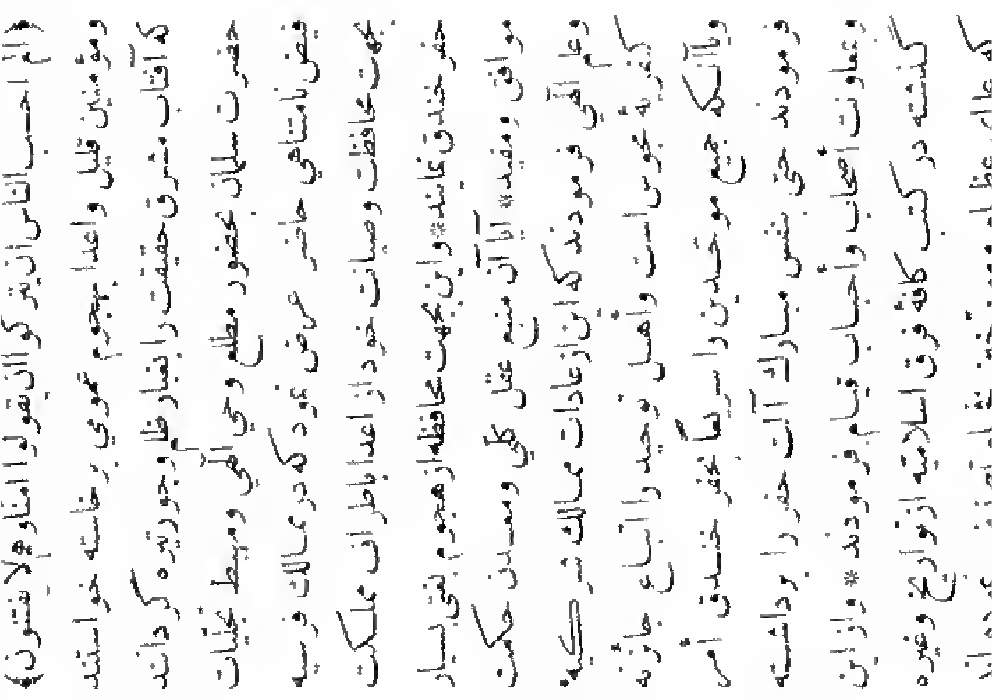 ﴿الم احسب الناس ان يتركوا ان يقولوا امنا وهم لا يفتنون﴾
ومؤمنين قليل واعدا بهجوم عمومي برخاسته خواستند
كه آفتاب مشرق حقيقت را بغبار ظلم وجور تيره گردانند
حضرت سلمان بحضور مطلع وحي آلهي ومهبط تجليات
فيض نامتناهي حاضر عرض نمود كه در ممالك فرسيه
بجهت محافظت وصيانت خود از اعدا باطراف مملكت
حفر خندق نمايند * واين بجهت محافظه از هجوم بغتي بسيار
موافق ومفيد * آيا آن منبع عقل كلي ومعدن حكمت
وعلم الهي فرمودند كه اين از عادات ممالك شركيه
كفريهٔ مجوس است واهل توحيد را اتباع جائز نه
ويا آنكه جميع موحدين را سريعاً بحفر خندق أمر
فرمودند حتى بنفس مبارك آلت حفر را برداشته
وبمعاونت أصحاب وأحباب قيام فرمودند * واز اين
گذشته در كتب كافهٔ فرق اسلاميه از تواريخ وغيره
كه علماى عظام